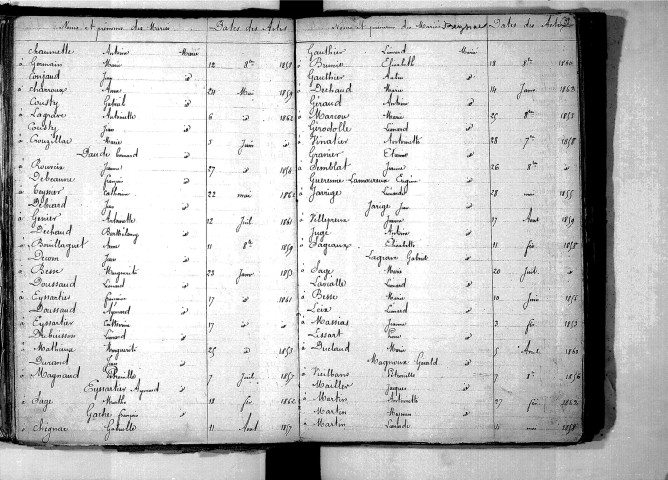 Noms et prénoms des Mariés Dates des Actes
Chaumette Antoine Marié
à Germain Marie 12 8bre 1858
Coujaud Jean d
à Charroux Anne 24 Mai 1859
Cousty Gabriel d
à Lagrave Antoinette 6 d 1862
Cousty Jean d
à Crouzillac Marie 3 Juin d
Daude Léonard d
à Rouvein Jeanne 27 d 1854
Debeaune François d
à Teyssier Catherine 22 mai 1862
Debiard Jean d
à Genier Antoinette 12 Juil. 1861
Dechaud Barthélemy d
à Bouillaguet Anne 11 8bre 1859
Devoon Jean d
à Besse Marguerite 23 Janv 1853
Doussaud Léonard d
à Eyssartier Germaine 17 d 1861
Doussaud Aymard d
à Eyssartier Catherine 17 d d
Dubuisson Léonard d
à Mathieux Marguerite 25 d 1853
Durand Jean d
à Magnaud Pétronille 7 Juil 1857
Eyssartier Aymard d
à Sage Miette 18 fév 1862
Gache François d
à Chignac Gabrielle 11 Aout 1857
Noms et prénoms des Mariés Dates des Actes
Gauthier Léonard Marié
à Bunis Elisabeth 18 8bre 1860
Gauthier Antoine d
à Dechaud Marie 14 Janv 1863
Giraud Antoine d
à Marcou Marie 25 8bre 1853
Girodolle Léonard d
à Vinatier Antoinette 28 7bre 1858
Granier Etienne d
à Semblat Jeanne 26 8bre d
Guerenne Lamoureux Eugène d
à Jarrige Léonarde 28 mai 1855
Jarrige Jean d
à Villepreux Jeanne 17 Aout 1859
Jugé Antoine d
à Pageaux Elisabeth 11 fév 1858
Lagrave Gabriel d
à Sage Marie 20 Juil d
Lavialle Léonard d
à Besse Marie 10 Juin 1856
Leix Léonard d
à Massias Jeanne 3 fév 1853
Lissart Pierre d
à Duclaud Marie 5 Avril 1860
Magnoux Gérald d
à Veilbans Pétronille 7 8bre 1856
Mailler Jacques d
à Martin Antoinette 27 fév 1862
Martin Maximin d
à Martin Léonarde 11 mai 1858